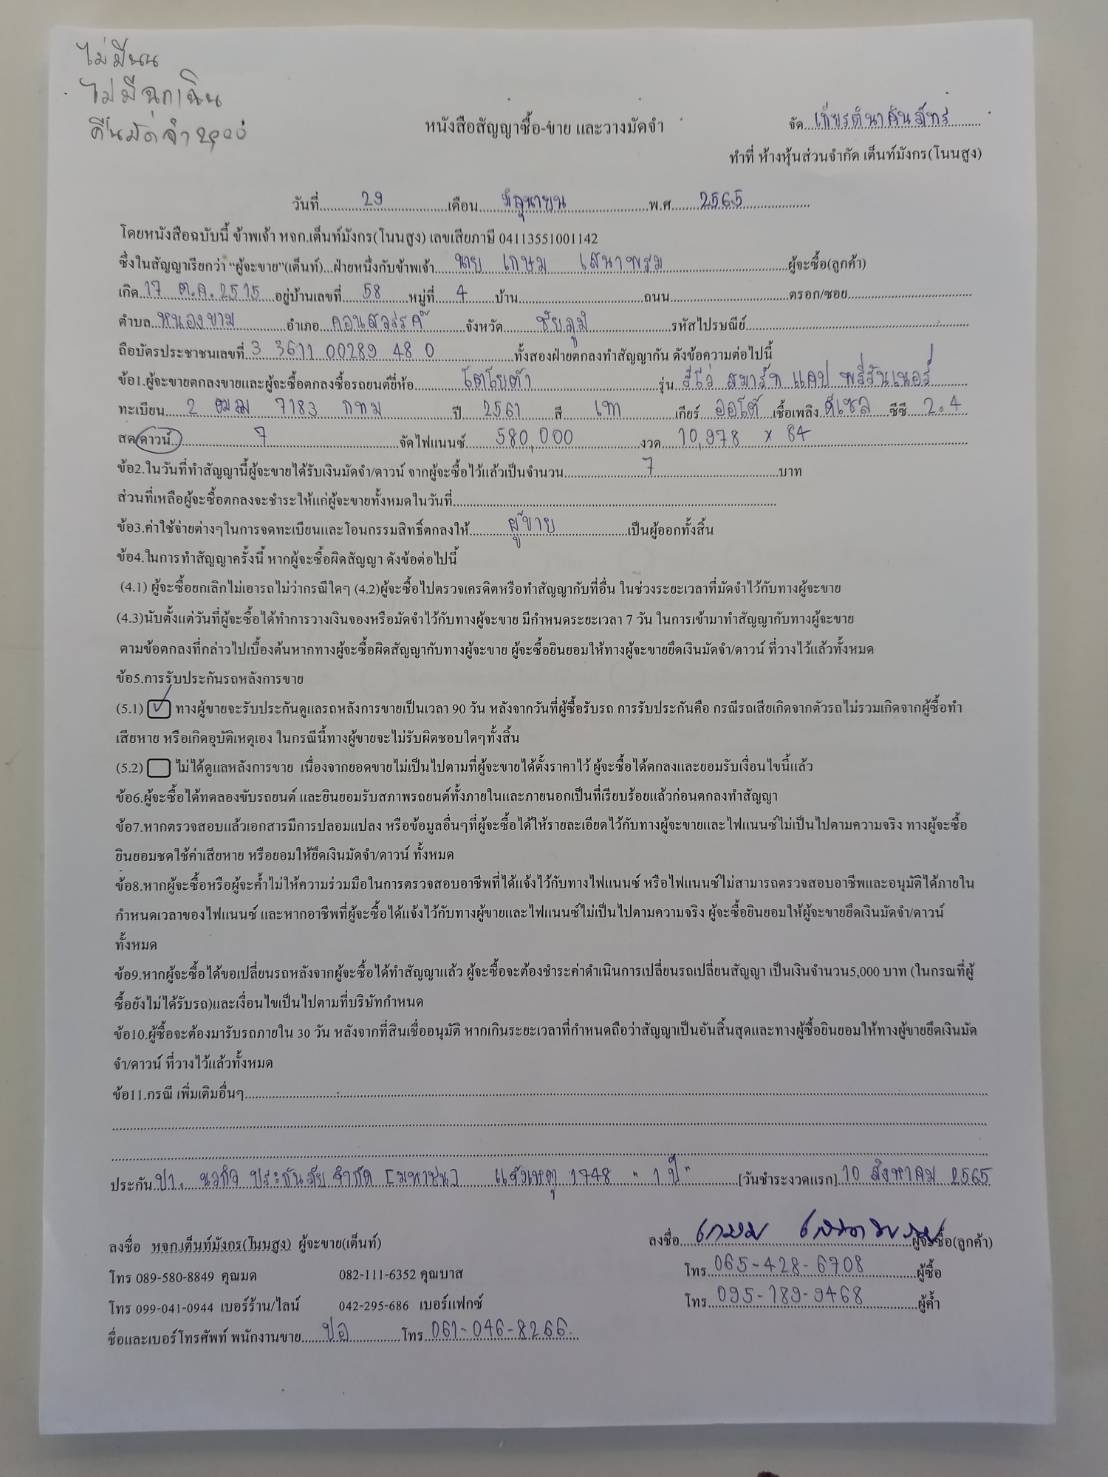 ไม่มีนน
ไม่มีฉุกเฉิน
คืนมัดจำ 2,000
หนังสือสัญญาซื้อ-ขาย และวางมัดจำ
จัด เกียรตินาคินภัทร
ทำที่ ห้างหุ้นส่วนจำกัด เต็นท์มังกร(โนนสูง)
วันที่ 29 เดือน มิถุนายน พ.ศ. 2565
โดยหนังสือฉบับนี้ ข้าพเจ้า หจก.เต็นท์มังกร(โนนสูง) เลขเสียภาษี 04113551001142
ซึ่งในสัญญาเรียกว่า "ผู้จะขาย"(เต็นท์)...ฝ่ายหนึ่งกับข้าพเจ้า นาย เกษม เสนาพรม ผู้จะซื้อ(ลูกค้า)
เกิด 17 ต.ค. 2515 อยู่บ้านเลขที่ 58 หมู่ที่ 4 บ้าน ถนน ตรอก/ซอย
ตำบล หนองขาม อำเภอ คอนสวรรค์ จังหวัด ชัยภูมิ รหัสไปรษณีย์
ถือบัตรประชาชนเลขที่ 3 3611 00289 48 0 ทั้งสองฝ่ายตกลงทำสัญญากัน ดังข้อความต่อไปนี้
ข้อ1.ผู้จะขายตกลงขายและผู้จะซื้อตกลงซื้อรถยนต์ยี่ห้อ โตโยต้า รุ่น รีโว่ สมาร์ท แคป พรีรันเนอร์
ทะเบียน 2 ฒฒ 7183 กทม ปี 2561 สี เทา เกียร์ ออโต้ เชื้อเพลิง ดีเซล ซีซี 2.4
สด/ดาวน์ 7 จัดไฟแนนซ์ 580,000 งวด 10,978 x 84
ข้อ2.ในวันที่ทำสัญญานี้ผู้จะขายได้รับเงินมัดจำ/ดาวน์ จากผู้จะซื้อไว้แล้วเป็นจำนวน 7 บาท
ส่วนที่เหลือผู้จะซื้อตกลงจะชำระให้แก่ผู้จะขายทั้งหมดในวันที่
ข้อ3.ค่าใช้จ่ายต่างๆในการจดทะเบียนและโอนกรรมสิทธิ์ตกลงให้ ผู้ขาย เป็นผู้ออกทั้งสิ้น
ข้อ4.ในการทำสัญญาครั้งนี้ หากผู้จะซื้อผิดสัญญา ดังข้อต่อไปนี้
(4.1) ผู้จะซื้อยกเลิกไม่เอารถไม่ว่ากรณีใดๆ (4.2)ผู้จะซื้อไปตรวจเครดิตหรือทำสัญญากับที่อื่น ในช่วงระยะเวลาที่มัดจำไว้กับทางผู้จะขาย
(4.3)นับตั้งแต่วันที่ผู้จะซื้อได้ทำการวางเงินจองหรือมัดจำไว้กับทางผู้จะขาย มีกำหนดระยะเวลา 7 วัน ในการเข้ามาทำสัญญากับทางผู้จะขาย
ตามข้อตกลงที่กล่าวไปเบื้องต้นหากทางผู้จะซื้อผิดสัญญากับทางผู้จะขาย ผู้จะซื้อยินยอมให้ทางผู้จะขายยึดเงินมัดจำ/ดาวน์ ที่วางไว้แล้วทั้งหมด
ข้อ5.การรับประกันรถหลังการขาย
(5.1) ทางผู้ขายจะรับประกันดูแลรถหลังการขายเป็นเวลา 90 วัน หลังจากวันที่ผู้ซื้อรับรถ การรับประกันคือ กรณีรถเสียเกิดจากตัวรถไม่รวมเกิดจากผู้ซื้อทำ
เสียหาย หรือเกิดอุบัติเหตุเอง ในกรณีนี้ทางผู้ขายจะไม่รับผิดชอบใดๆทั้งสิ้น
(5.2) ไม่ได้ดูแลหลังการขาย เนื่องจากยอดขายไม่เป็นไปตามที่ผู้จะขายได้ตั้งราคาไว้ ผู้จะซื้อได้ตกลงและยอมรับเงื่อนไขนี้แล้ว
ข้อ6.ผู้จะซื้อได้ทดลองขับรถยนต์ และยินยอมรับสภาพรถยนต์ทั้งภายในและภายนอกเป็นที่เรียบร้อยแล้วก่อนตกลงทำสัญญา
ข้อ7.หากตรวจสอบแล้วเอกสารมีการปลอมแปลง หรือข้อมูลอื่นๆที่ผู้จะซื้อได้ให้รายละเอียดไว้กับทางผู้จะขายและไฟแนนซ์ไม่เป็นไปตามความจริง ทางผู้จะซื้อ
ยินยอมชดใช้ค่าเสียหาย หรือยอมให้ยึดเงินมัดจำ/ดาวน์ ทั้งหมด
ข้อ8.หากผู้จะซื้อหรือผู้จะค้ำไม่ให้ความร่วมมือในการตรวจสอบอาชีพที่ได้แจ้งไว้กับทางไฟแนนซ์ หรือไฟแนนซ์ไม่สามารถตรวจสอบอาชีพและอนุมัติได้ภายใน
กำหนดเวลาของไฟแนนซ์ และหากอาชีพที่ผู้จะซื้อได้แจ้งไว้กับทางผู้ขายและไฟแนนซ์ไม่เป็นไปตามความจริง ผู้จะซื้อยินยอมให้ผู้จะขายยึดเงินมัดจำ/ดาวน์
ทั้งหมด
ข้อ9.หากผู้จะซื้อได้ขอเปลี่ยนรถหลังจากผู้จะซื้อได้ทำสัญญาแล้ว ผู้จะซื้อจะต้องชำระค่าดำเนินการเปลี่ยนรถเปลี่ยนสัญญา เป็นเงินจำนวน5,000 บาท (ในกรณที่ผู้
ซื้อยังไม่ได้รับรถ)และเงื่อนไขเป็นไปตามที่บริษัทกำหนด
ข้อ10.ผู้ซื้อจะต้องมารับรถภายใน 30 วัน หลังจากที่สินเชื่ออนุมัติ หากเกินระยะเวลาที่กำหนดถือว่าสัญญาเป็นอันสิ้นสุดและทางผู้ซื้อยินยอมให้ทางผู้ขายยึดเงินมัด
จำ/ดาวน์ ที่วางไว้แล้วทั้งหมด
ข้อ11.กรณี เพิ่มเติมอื่นๆ
ประกัน ป1. นวกิจ ประกันภัย จำกัด [มหาชน] แจ้งเหตุ 1748 "1 ปี" [วันชำระงวดแรก] 10 สิงหาคม 2565
ลงชื่อ หจก.เต็นท์มังกร(โนนสูง) ผู้จะขาย(เต็นท์)
ลงชื่อ เกษม ผู้จะซื้อ(ลูกค้า)
โทร 089-580-8849 คุณมด 082-111-6352 คุณบาส
โทร 065-428-6708 ผู้ซื้อ
โทร 099-041-0944 เบอร์ร้าน/ไลน์ 042-295-686 เบอร์แฟกซ์
โทร 095-789-9468 ผู้ค้ำ
ชื่อและเบอร์โทรศัพท์ พนักงานขาย ปอ โทร 061-046-8266